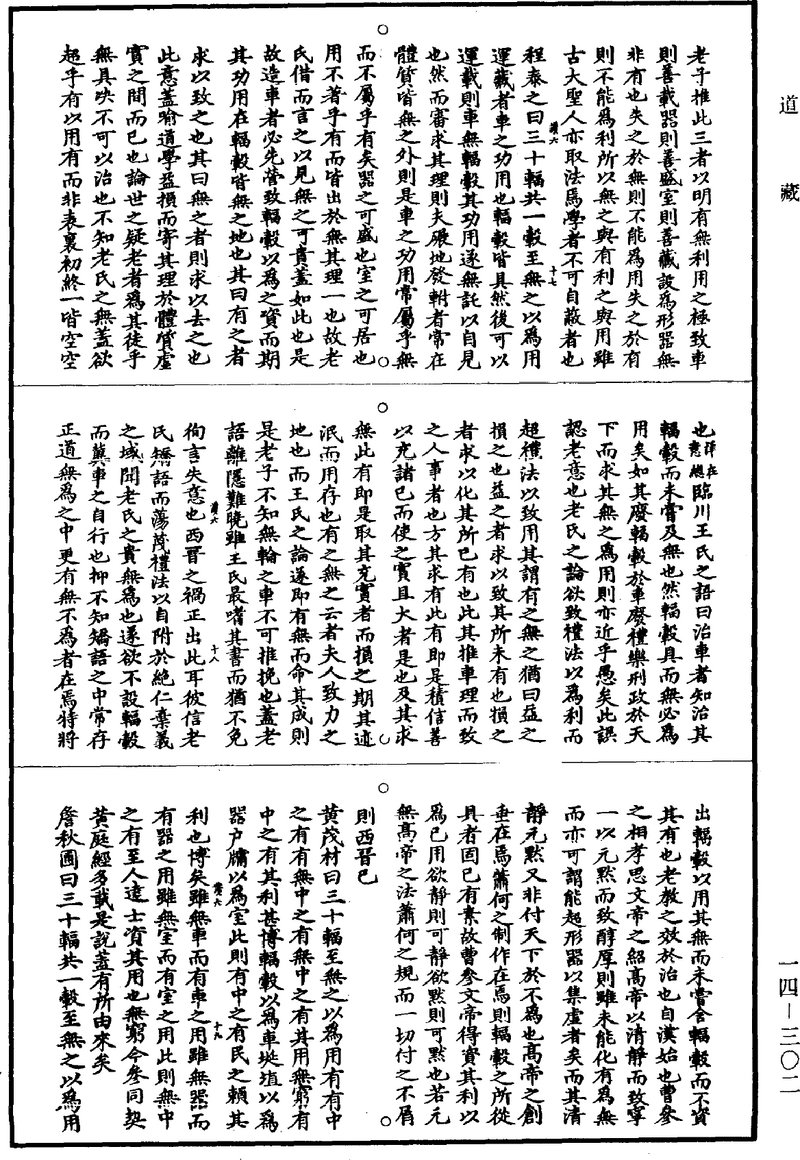 道藏
老子推此三者以明有無利用之極致車
則善載器則善盛室則善藏設為形器無
非有也失之於無則不能為用失之於有
則不能為利所以無之與有利之與用雖
古大聖人亦取法焉學者不可自蔽者也
程泰之曰三十輻共一轂至無之以為用
運藏者車之功用也輻轂皆具然後可以
運載則車無輻轂其功用遂無託以自見
也然而審求其理則夫碾地發軔者常在
體質皆無之外則是車之功用常屬乎無
而不屬乎有矣器之可盛也室之可居也
用不著乎有而皆出於無其理一也故老
氏借而言之以見無之可貴蓋如此也是
故造車者必先營致輻轂以為之資而期
其功用在輻轂皆無之地也其曰有之者
求以致之也其曰無之者則求以去之也
此意蓋喻道學益損而寄其理於體質虛
實之間而已也論世之疑老者為其徒乎
無具決不可以治也不知老氏之無蓋欲
超乎有以用有而非表裏初終一皆空空
也詳在意總臨川王氏之語曰治車者知治其
輻轂而未嘗及無也然輻轂具而無必為
用矣如其廢輻轂於車廢禮樂刑政於天
下而求其無之為用則亦近乎愚矣此誤
認老意也老氏之論欲致禮法以為利而
超禮法以致用其謂有之無之猶曰益之
損之也益之者求以致其所未有也損之
者求以化其所已有也此其推車理而致
之人事者也方其求有此有即是積信善
以充諸已而使之實且大者是也及其求
無此有即是取其充實者而損之期其迹
泯而用存也有之無之云者夫人致力之
地也而王氏之論遂即有無而命其成則
是老子不知無輪之車不可推挽也蓋老
語離隱難曉雖王氏最嗜其書而猶不免
徇言失意也西晉之禍正出此耳彼信老
氏矯語而蕩蔑禮法以自附於絕仁棄義
之域聞老氏之貴無為也遂欲不設輻轂
而冀車之自行也抑不知矯語之中常存
正道無為之中更有無不為者在焉特將
出輻轂以用其無而未嘗舍輻轂而不資
其有也老教之效於治也自漢始也曹參
之相孝思文帝之紹高帝以清靜而致寧
一以元默而致醇厚則雖未能化有為無
而亦可謂能超形器以集虛者矣而其清
靜元默又非付天下於不為也高帝之創
垂在焉蕭何之制作在焉則輻轂之所從
具者固已有素故曹參文帝得資其利以
為已用欲靜則可靜欲默則可默也若元
無高帝之法蕭何之規而一切付之不屑
則西晉已
黃茂材曰三十輻至無之以為用有有中
之有有無中之有無中之有其用無窮有
中之有其利甚博輻轂以為車埏埴以為
器戶牖以為室此則有中之有民之賴其
利也博矣雖無車而有車之用雖無器而
有器之用雖無室而有室之用此則無中
之有至人達士資其用也無窮今參同契
黃庭經多載是說蓋有所由來矣
詹秋圃曰三十輻共一轂至無之以為用
十七
十八
十九
一四—三〇二